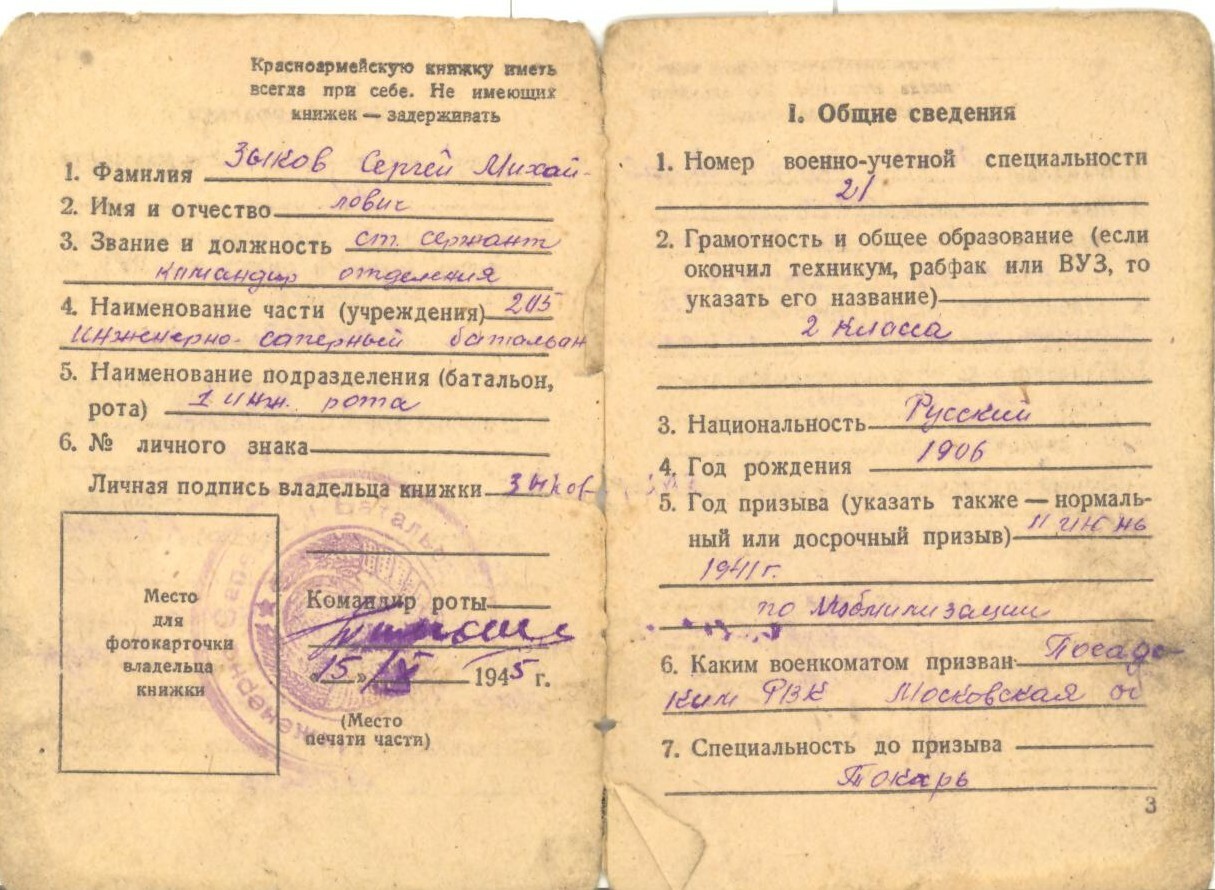 Красноармейскую книжку иметь
всегда при себе. Не имеющих
книжек — задерживать
1. Фамилия Зыков Сергей Михай-
2. Имя и отчество лович
3. Звание и должность ст. сержант
командир отделения
4. Наименование части (учреждения) 205
инженерно-саперный батальон
5. Наименование подразделения (батальон,
рота) 1 инж. рота
6. № личного знака
Личная подпись владельца книжки Зыков
Место
для
фотокарточки
владельца
книжки
Командир роты
«15» 1945 г.
(Место
печати части)
I. Общие сведения
1. Номер военно-учетной специальности
21
2. Грамотность и общее образование (если
окончил техникум, рабфак или ВУЗ, то
указать его название)
2 класса
3. Национальность Русский
4. Год рождения 1906
5. Год призыва (указать также — нормаль-
ный или досрочный призыв) июнь
1941 г.
по мобилизации
6. Каким военкоматом призван Посадс-
ким РВК Московская об
7. Специальность до призыва
Токарь
3